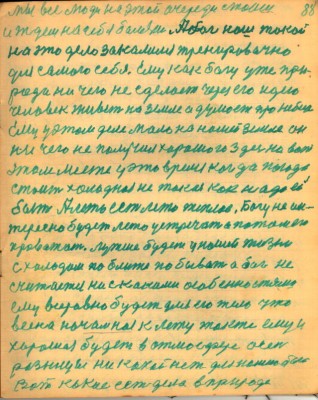 88
мы все люди на этой очереди стоим
и ждем на себя болезни А бог наш такой
на это дело закалился тренировочно
для самого себя. Ему как богу уже при-
рода ни чего не сделает через его идею
человек живет на земле а думает про небо
Ему у этом деле мало на нашей земле он
ни чего не получил хорошого здесь на вот
этом месте у это время когда погода
стоит холодная не такая как надо ей
быть А лето есть лето теплое, Богу не ин-
тересно будет лето устречать а потом его
провожать. Лучше будет у нашей жизни
с холодом по близке по бывать а бог не
считается ни с какими особенностями
ему всеравно будет для его тело что
весна началная к лету также ему и
хорошая будет в атмосфере осен
разницы ни какой нет для нашого бога
Вот какие есть дела в природе